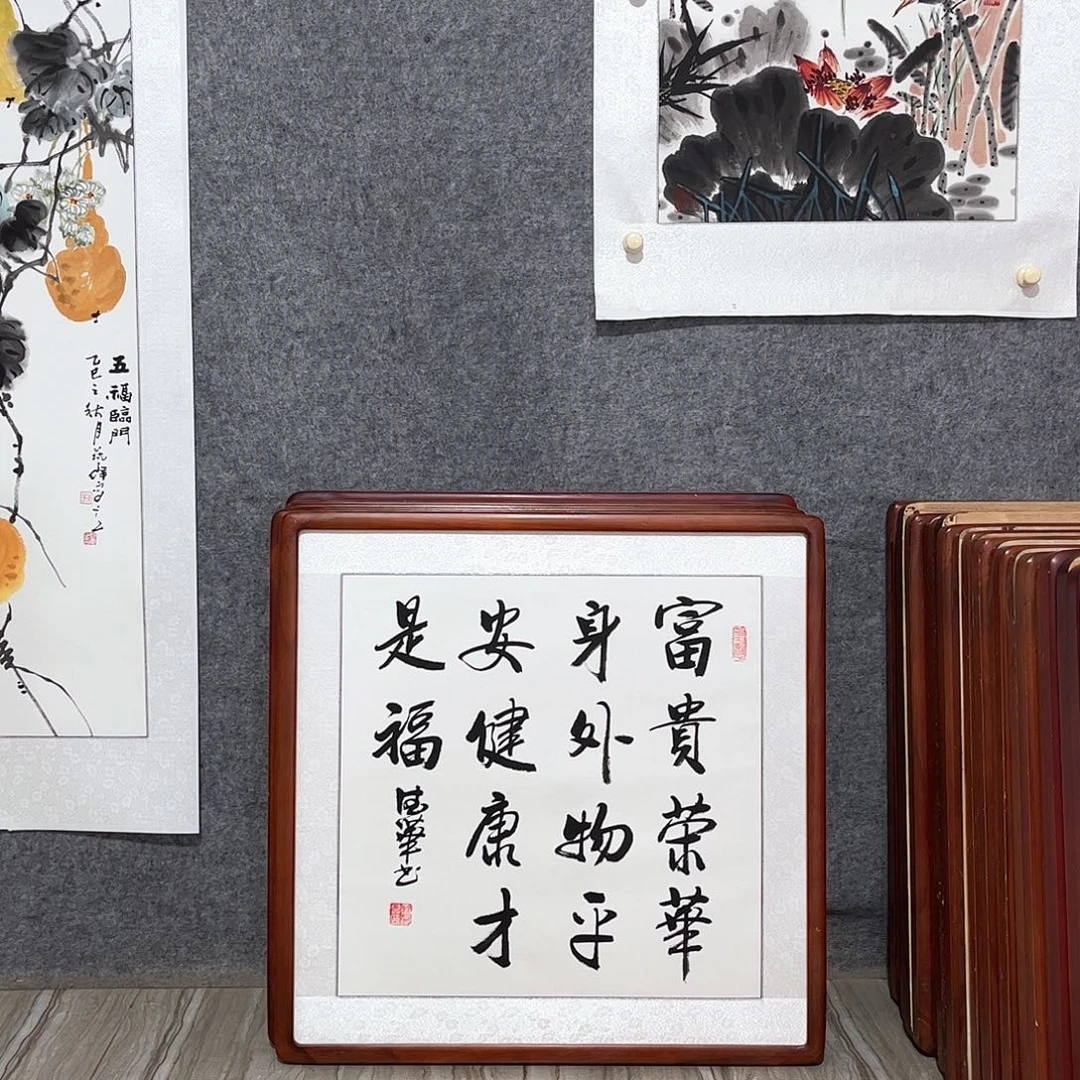 富貴荣華
身外物平
安健康才
是福
德華书
五福臨門
乙巳之秋月